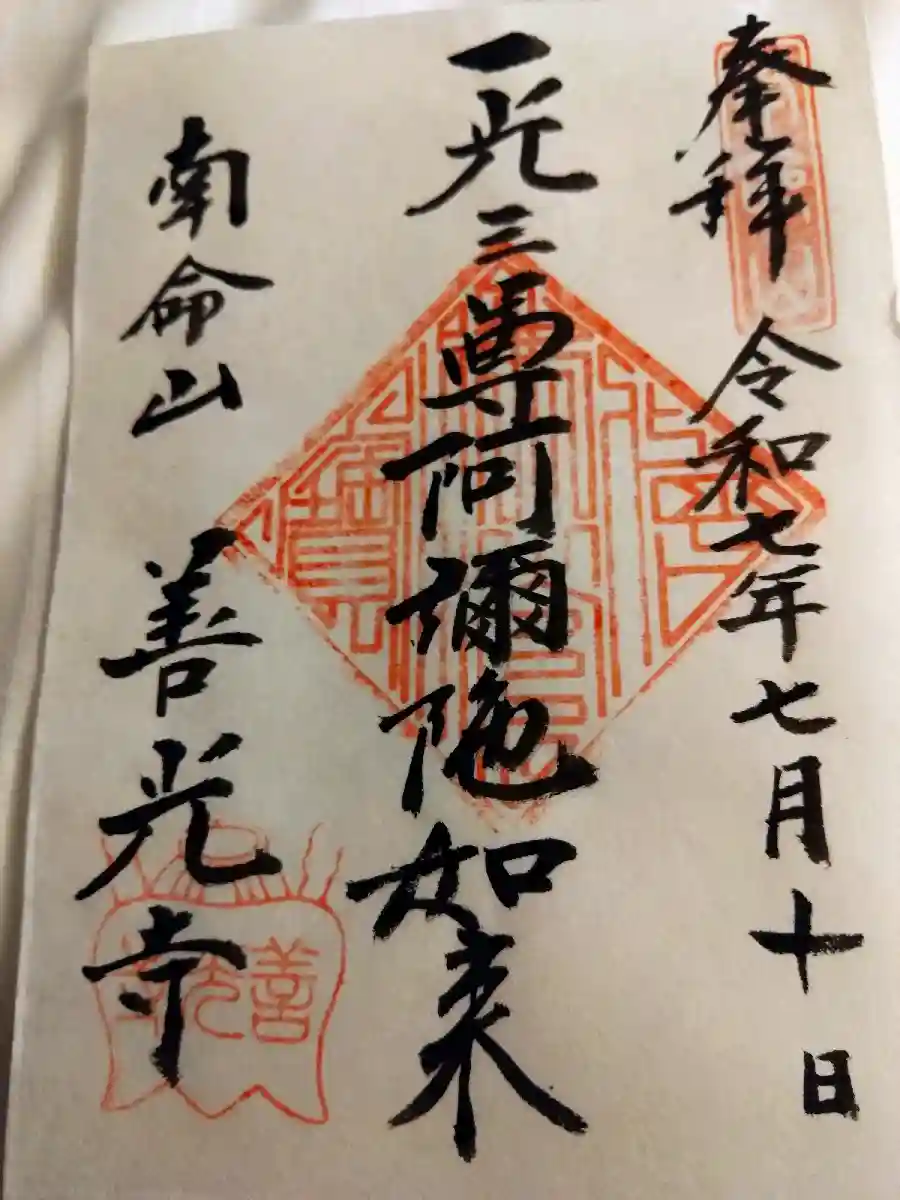 奉拜 令和七年七月十日
一光三尊阿彌陀如来
南命山 善光寺
善光寺